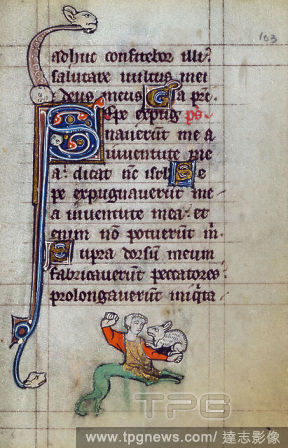 103
adhuc confitebor illi:
salutare vultus mei
deus meus. Gɫa pr̄i.
Sepe expug ps̄.
naverūt me a
iuventute me
a: dicat nc̄ isrł. Se
pe expugnaverūt me
a iuventute mea: et
enim nō potuerūt m̄.
Supra dorsū meum
fabricaverūt peccatores
prolongaverūt iniq̄ta
TPG
www.tpgnews.com/ 達志影像